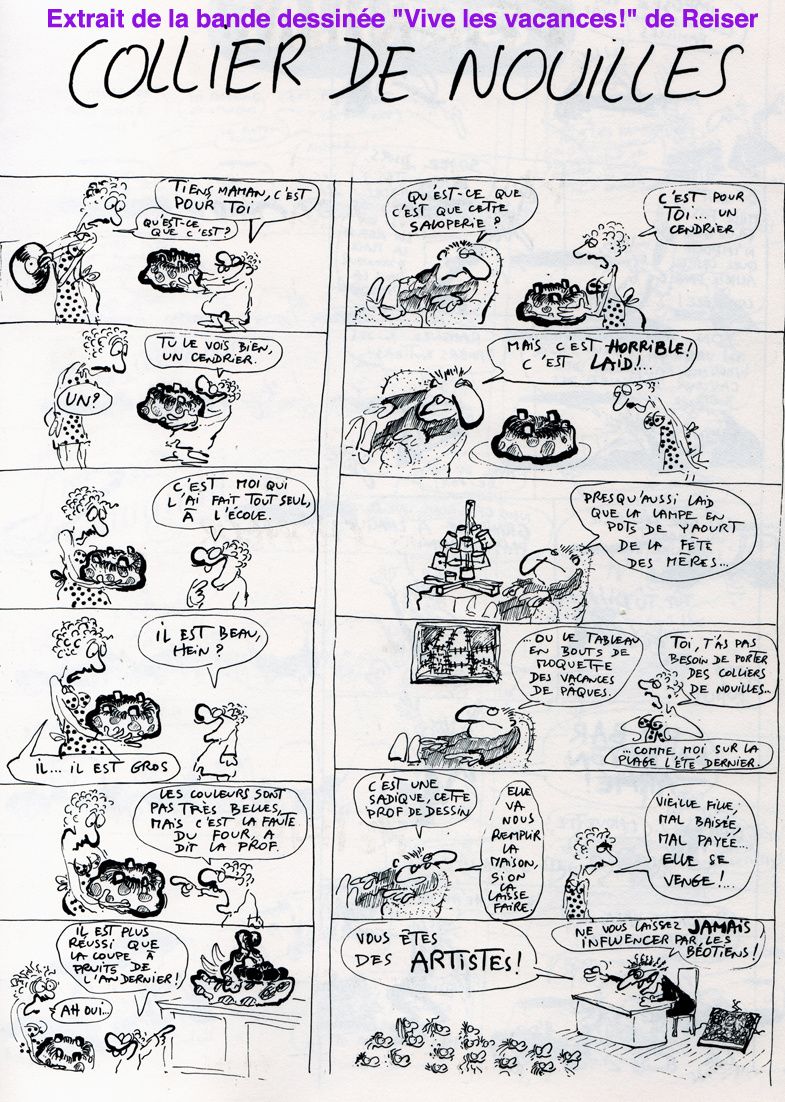 Extrait de la bande dessinée "Vive les vacances!" de Reiser
COLLIER DE NOUILLES
TIENS MAMAN, C'EST
POUR TOI
QU'EST-CE
QUE C'EST?
TU LE VOIS BIEN,
UN CENDRIER.
UN?
C'EST MOI QUI
L'AI FAIT TOUT SEUL,
À L'ÉCOLE.
IL EST BEAU,
HEIN ?
IL... IL EST GROS
LES COULEURS SONT
PAS TRÈS BELLES,
MAIS C'EST LA FAUTE
DU FOUR, A
DIT LA PROF.
IL EST PLUS
RÉUSSI QUE
LA COUPE À
FRUITS DE
L'AN DERNIER!
AH OUI...
QU'EST-CE QUE
C'EST QUE CETTE
SALOPERIE ?
C'EST POUR
TOI... UN
CENDRIER
MAIS C'EST HORRIBLE!
C'EST LAID!...
PRESQU'AUSSI LAID
QUE LA LAMPE EN
POTS DE YAOURT
DE LA FÊTE
DES MÈRES...
...OU LE TABLEAU
EN BOUTS DE
MOQUETTE
DES VACANCES
DE PÂQUES.
TOI, T'AS PAS
BESOIN DE PORTER
DES COLLIERS
DE NOUILLES...
...COMME MOI SUR LA
PLAGE L'ÉTÉ DERNIER.
C'EST UNE
SADIQUE, CETTE
PROF DE DESSIN
ELLE
VA
NOUS
REMPLIR
LA
MAISON,
SI ON
LA
LAISSE
FAIRE.
VIEILLE FILLE,
MAL BAISÉE,
MAL PAYÉE...
ELLE SE
VENGE !...
VOUS ÊTES
DES ARTISTES!
NE VOUS LAISSEZ JAMAIS
INFLUENCER PAR LES
BÉOTIENS!